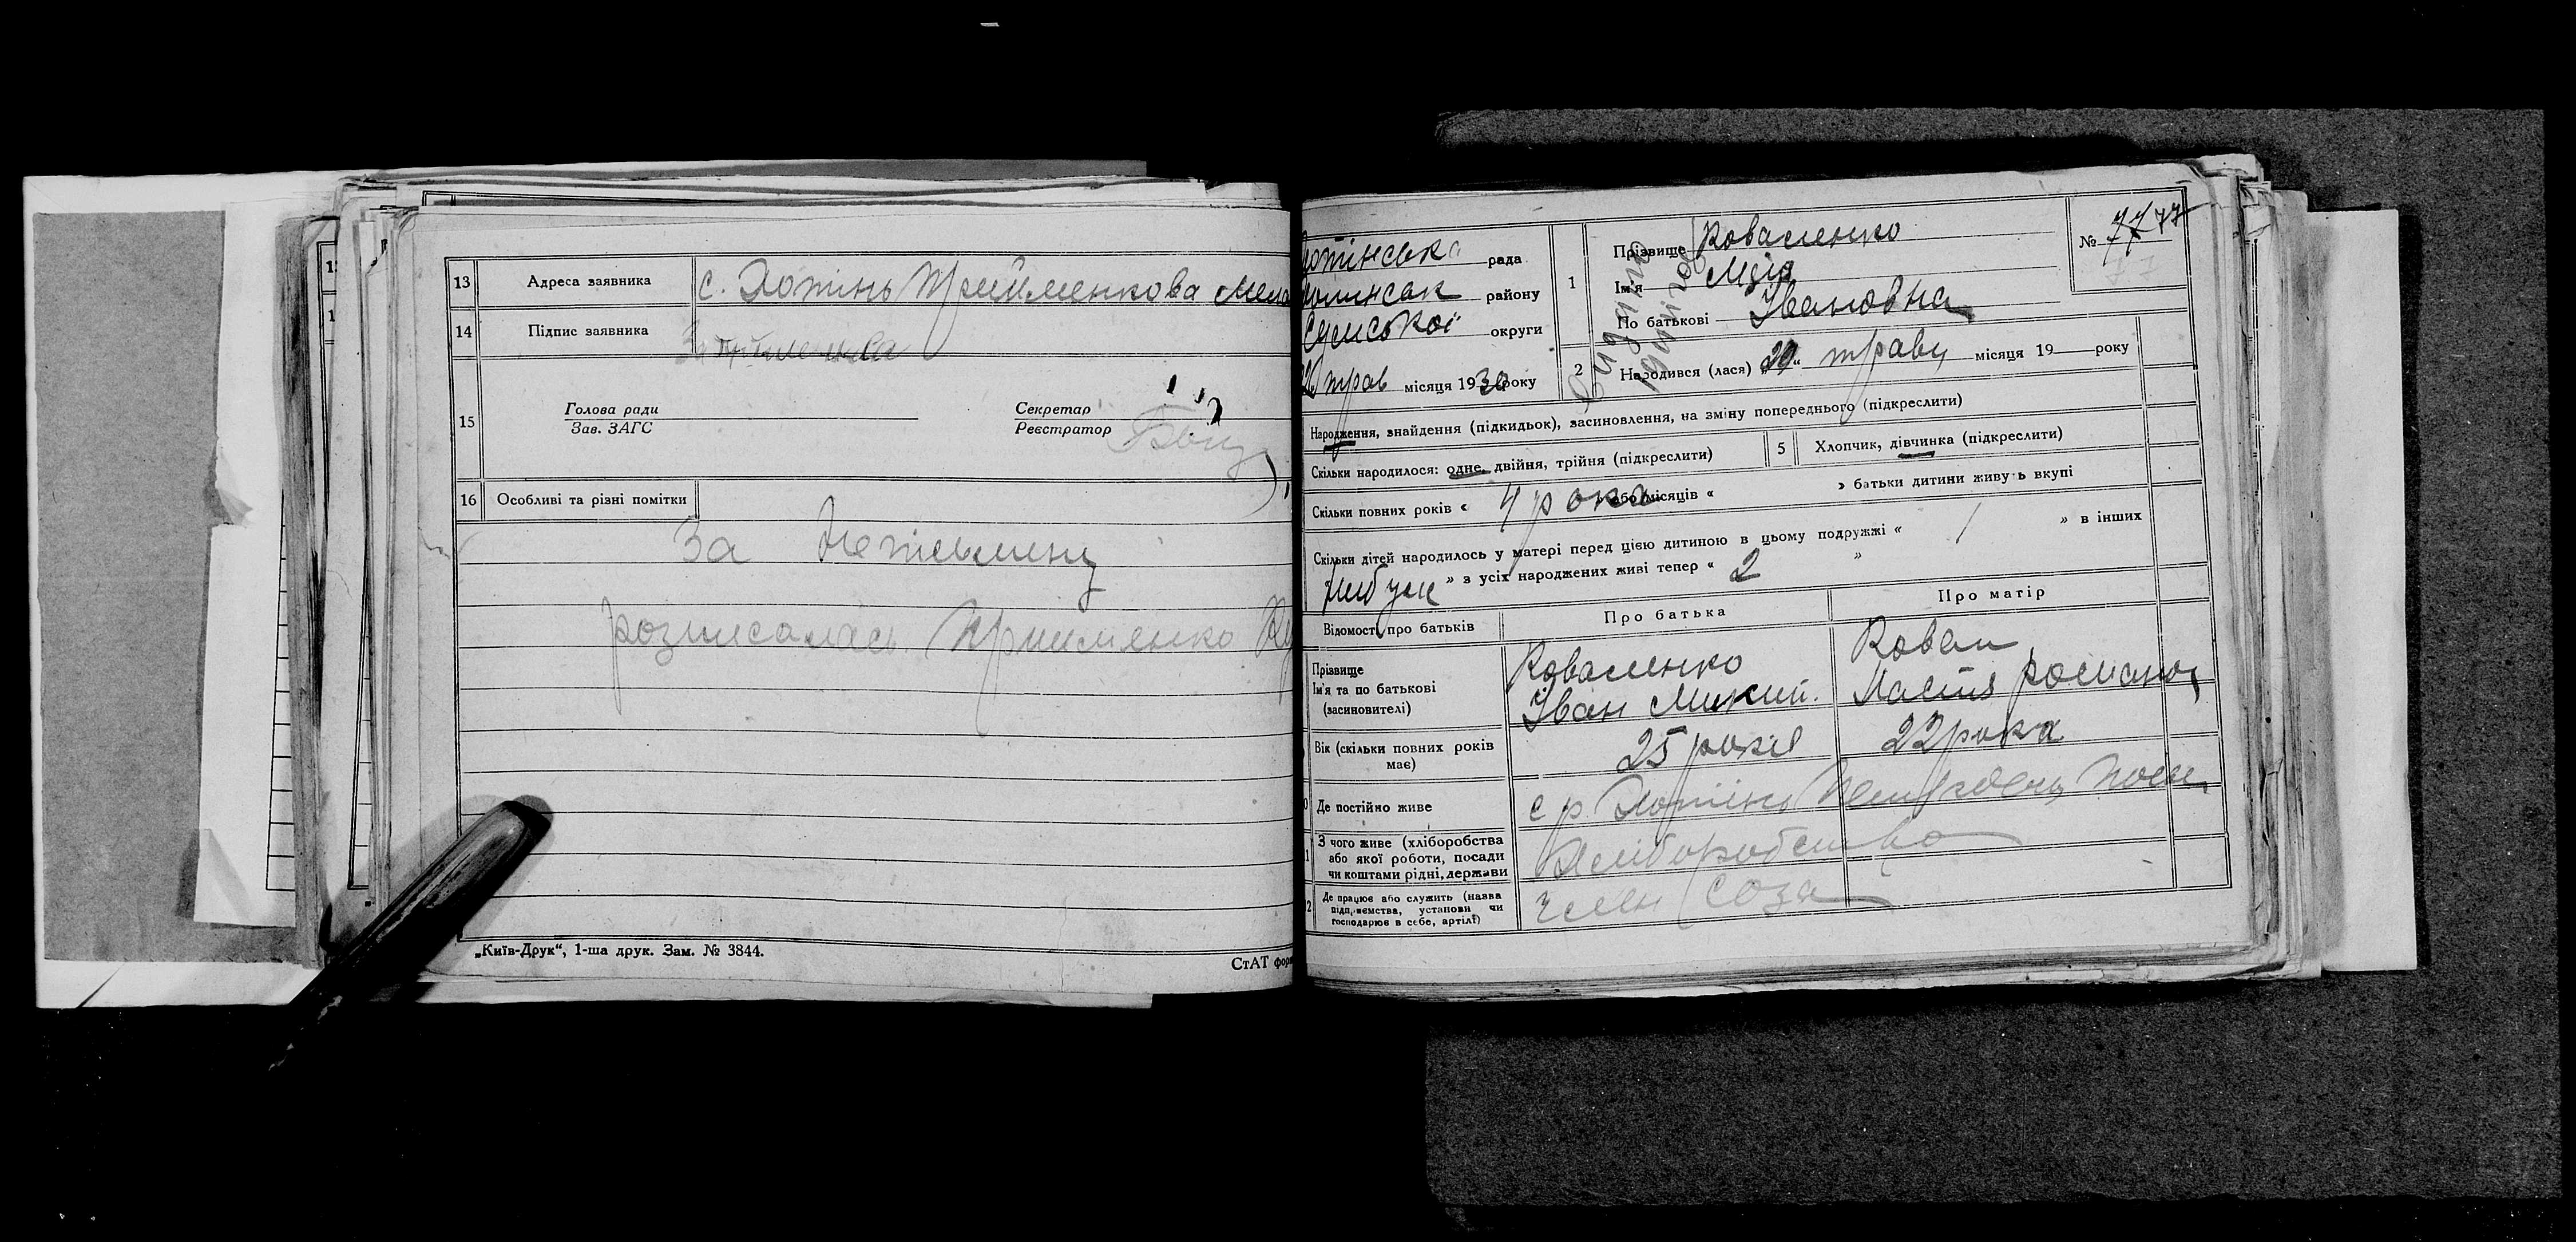 13 Адреса заявника с. Хотінь Прийменкова
14 Підпис заявника
15 Голова ради Секретар
Зав. ЗАГС Реєстратор
16 Особливі та різні помітки
За
розписалась Прийменко
„Київ-Друк“, 1-ша друк. Зам. № 3844.
СтАТ
рада
району
Сумської округи
трав місяця 1930 року
1 Прізвище Коваленко
Ім'я
По батькові Івановна
№ 77 77
2 Народився (лася) „20“ травц місяця 19 року
Народження, знайдення (підкидьок), засиновлення, на зміну попереднього (підкреслити)
Скільки народилося: одне, двійня, трійня (підкреслити) 5 Хлопчик, дівчинка (підкреслити)
Скільки повних років « 4 рока » або місяців « » батьки дитини живуть вкупі
Скільки дітей народилось у матері перед цією дитиною в цьому подружжі « 1 » в інших
» з усіх народжених живі тепер « 2 »
Відомості про батьків Про батька Про матір
Прізвище Коваленко Ковал
Ім'я та по батькові Іван Микит.
(засиновителі)
Вік (скільки повних років має) 25 років 22 рока
Де постійно живе с р Хотінь
З чого живе (хліборобства Хліборобство
або якої роботи, посади
чи коштами рідні, держави
Де працює або служить (назва член соза
підприємства, установи чи
господарює в себе, артілі)